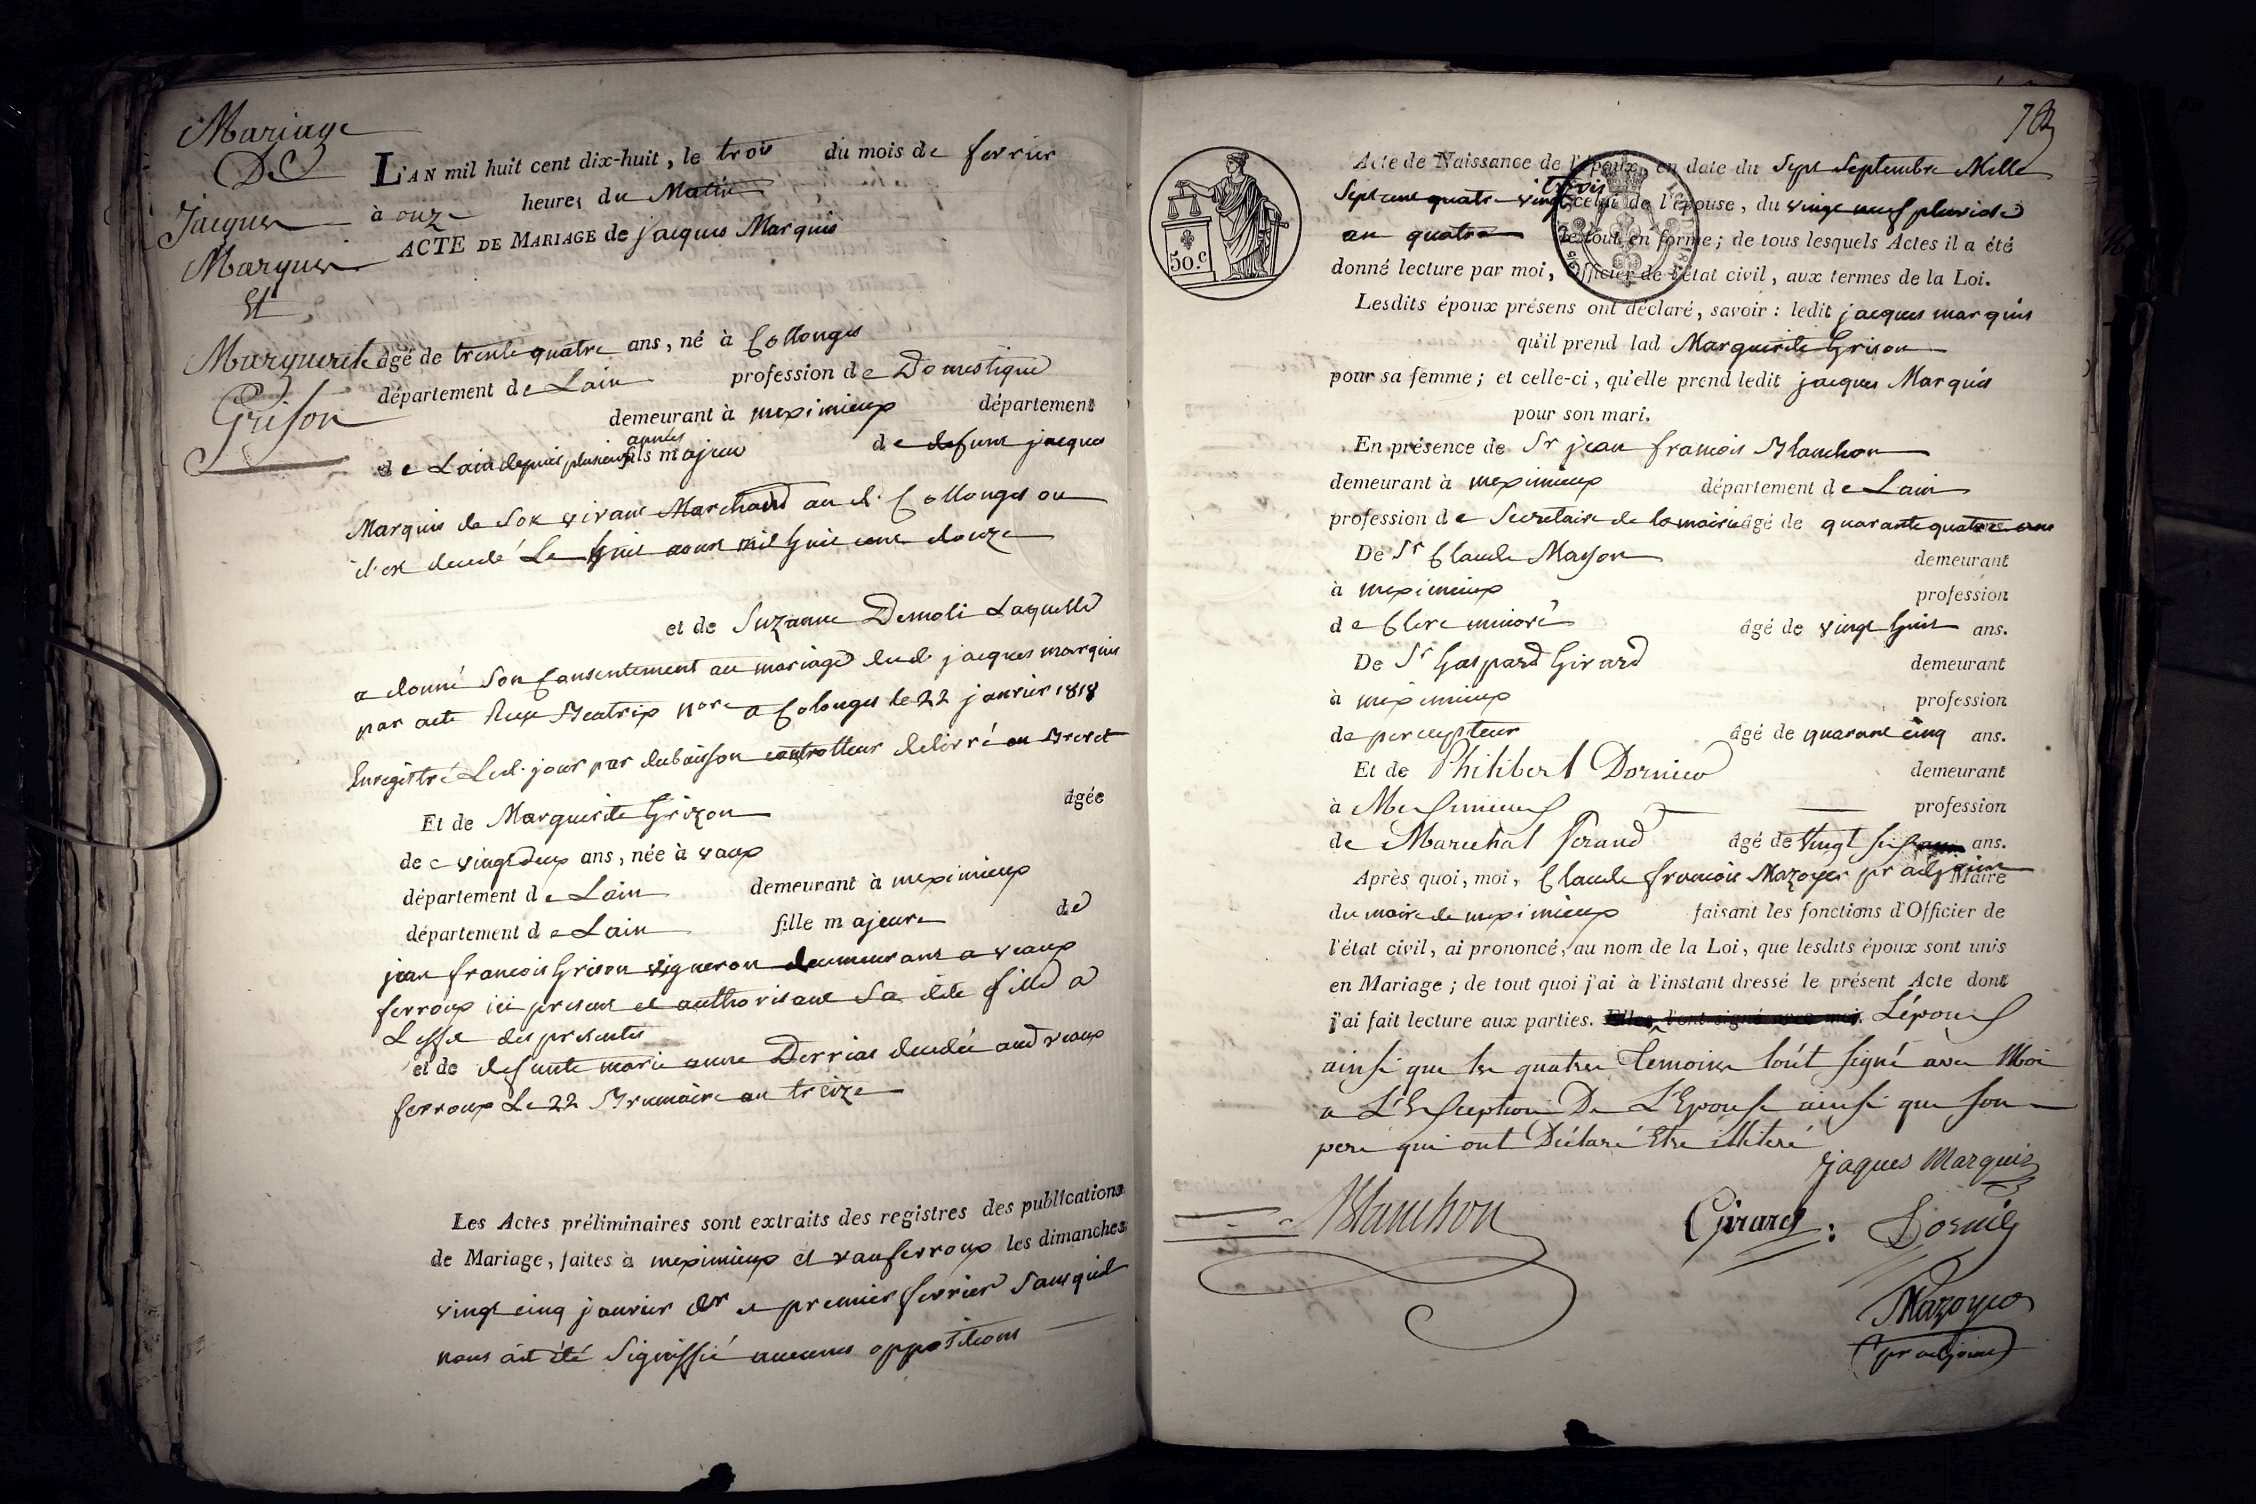 Mariage
De
Jacques
Marquis
Et
Marguerite
Grison
L'AN mil huit cent dix-huit, le trois du mois de fevrier
à onze heures du Matin
ACTE DE MARIAGE de jacques Marquis
âgé de trente quatre ans, né à Collonges
département de Lain profession de Domestique
demeurant à meximieux département
de Lain depuis plusieurs années fils majeur de defunt jacques
Marquis de son vivant Marchand au d. Collonges ou
il est decedé Le huit aout mil huit cent douze
et de Suzanne Demoli Laquelle
a donné son Consentement au mariage dud. jacques marquis
par acte Reçu Beatrix nore a Colonges le 22 janvier 1818
Enregistré Led. jour par dubuisson controlleur delivré en Brevet
Et de Marguerite Grizon âgée
de vingt deux ans, née à vaux
département de Lain demeurant à meximieux
département de Lain fille majeure de
jean francois Grison vigneron demeurant a vaux
ferroux ici present et authorisant sa dite fille a
Leffet des presentes
et de defunte marie anne Derrias decedée aud vaux
ferroux Le 22 Brumaire an treize
Les Actes préliminaires sont extraits des registres des publications
de Mariage, faites à meximieux et vauferroux les dimanches
vingt cinq janvier dr et premier fevrier sans quil
nous ait été signiffié aucunes oppositions
50.c
Acte de Naissance de l'époux, en date du sept septembre Mille
sept cent quatre vingt trois celui de l'épouse, du vingt neuf pluviose
an quatre le tout en forme; de tous lesquels Actes il a été
donné lecture par moi, Officier de l'état civil, aux termes de la Loi.
Lesdits époux présens ont déclaré, savoir: ledit jacques marquis
qu'il prend lad Marguerite Grison
pour sa femme; et celle-ci, qu'elle prend ledit jacques Marquis
pour son mari.
En présence de Sr jean francois Blanchon
demeurant à meximieux département de Lain
profession de Secretaire de la mairie âgé de quarante quatre ans
De Sr Claude Masson demeurant
à meximieux profession
de Clerc minoré âgé de vingt huit ans.
De Sr Gaspard Girard demeurant
à meximieux profession
de percepteur âgé de quarante cinq ans.
Et de Philibert Dornier demeurant
à Meximieux profession
de Marechal ferand âgé de Vingt six ans.
Après quoi, moi, Claude francois Mazoyer pr adjoint Maire
du maire de meximieux faisant les fonctions d'Officier de
l'état civil, ai prononcé, au nom de la Loi, que lesdits époux sont unis
en Mariage; de tout quoi j'ai à l'instant dressé le présent Acte dont
j'ai fait lecture aux parties. Elles l'ont signé avec moi. L'époux
ainsi que les quatre temoins l'ont signé avec Moi
a L'Exception De L'Epouse ainsi que son
pere qui ont Déclaré Etre illiteré
jaques Marquis
Blanchon
Girard
Dornier
Mazoyer
pr adjoint